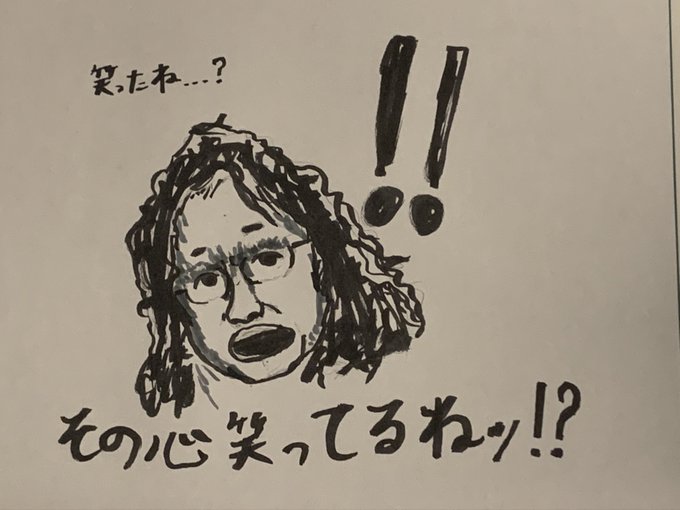 笑ったね...?
!!
その心笑ってるねッ!?